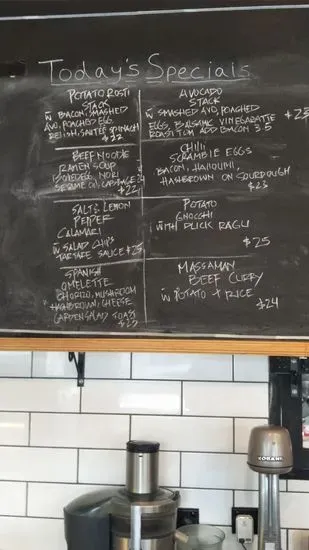 Today's Specials
POTATO ROSTI
STACK
W BACON, SMASHED
AVO, POACHED EGG
RELISH, SAUTEE SPINACH
$22
AVOCADO
STACK
W SMASHED AVO, POACHED
EGGS, BALSAMIC VINEGARATTE
ROAST TOM ADD BACON 3.5
$23
BEEF NOODLE
RAMEN SOUP
BOILED EGG, NORI
SESAME OIL, CABBAGE
$22
CHILLI
SCRAMBLE EGGS
BACON, HALOUMI,
HASHBROWN ON SOURDOUGH
$23
SALT & LEMON
PEPPER
CALAMARI
W SALAD CHIPS
TARTARE SAUCE $25
POTATO
GNOCCHI
WITH DUCK RAGU
$25
SPANISH
OMELETTE
CHORIZO, MUSHROOM
HASHBROWN, CHEESE
GARDEN SALAD TOAST
$23
MASSAMAN
BEEF CURRY
W POTATO + RICE
$24
ROBAND